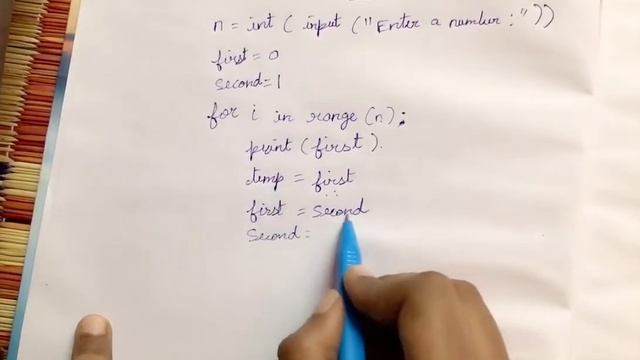 n = int ( input ("Enter a number :"))
first = 0
second = 1
for i in range (n);
print (first).
temp = first
first = second
second =